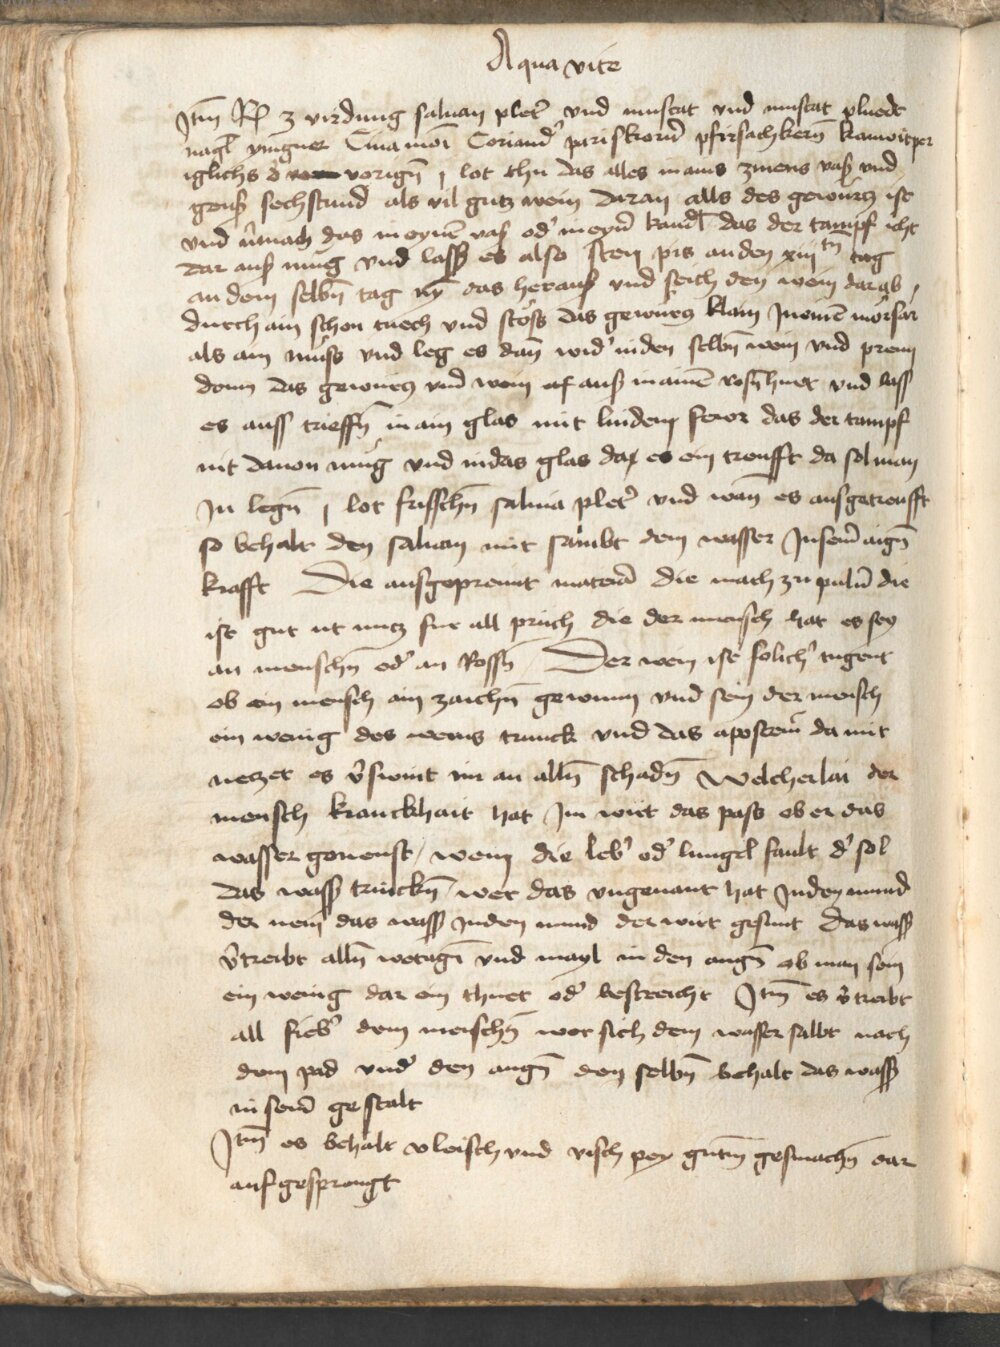 Aqua vite
Itm̄ Rp 3 virdung saluan plet' vnd muscat vnd muscat pluedt
nagl ymgner Cinamoī Coriand' pariskorn̄ pfersichkern̄
iglichs d' vorign̄ j lot thu das alles in ains zimens vasz vnd
geusz sechstund als vil gutz wein daran alls des gewurcz ist
vnd v̄mach das in eynē vasz od' in eyn̄ kandl das der tampf icht
dar ausz mūg vnd lasz es also sten pis an den xiiij tn̄ tag
an dem selbn̄ tag nȳ das herausz vnd seich den wein darab
durch ain schon tuech vnd stos das gewurcz klain In einē morsar
als ain muss vnd leg es dan̄ wid' in den selbn̄ wein vnd prenn
denn das gewurcz vnd wein ausz in ainē rosn̄huet vnd lass
es auss trieffn̄ in ain glas mit lindem fewr das der tampf
nit dauon mūg vnd in das glas dar es ein treufft da sol man
In legn̄ j lot frisschn̄ saluia plet' vnd wan̄ es ausgetreufft
so behalt den saluan mit sambt dem wasser In sein̄ aign̄
krafft Die ausgeprennt materia die mach zu puluer die
ist gut nutz fur all pruch die der mensch hat es sey
an menschn̄ od' an Rossn̄ Der wein ist solich' tugent
ob ein mensch ain zaichn̄ gewunn vnd sein der mensch
ein wenig des weins trinck vnd das apostem̄ da mit
neczet es v̄swint im an alln̄ schadn̄ Welcherlai der
mensch kranckhait hat Im wirt das pass ob er das
wasser geneust / wem die leb' od' lungel fault d' sol
das wass trinckn̄ wer das vngenant hat In den mund
der nem das wass In den mund der wirt gesunt Das wass
v̄treibt alln̄ wetagn̄ vnd mayl in den augn̄ ob man sein
ein wenig dar ein thuet od' bestreicht Itm̄ es v̄treibt
all fieb' dem menschn̄ wer sich dem wasser salbt nach
dem pad vnd' den augn̄ den selbn̄ behalt das wass
in sein̄ gestalt
Itm̄ es behalt vleisch vnd visch pey gutm̄ gesmachn̄ dar
auf gesprengt